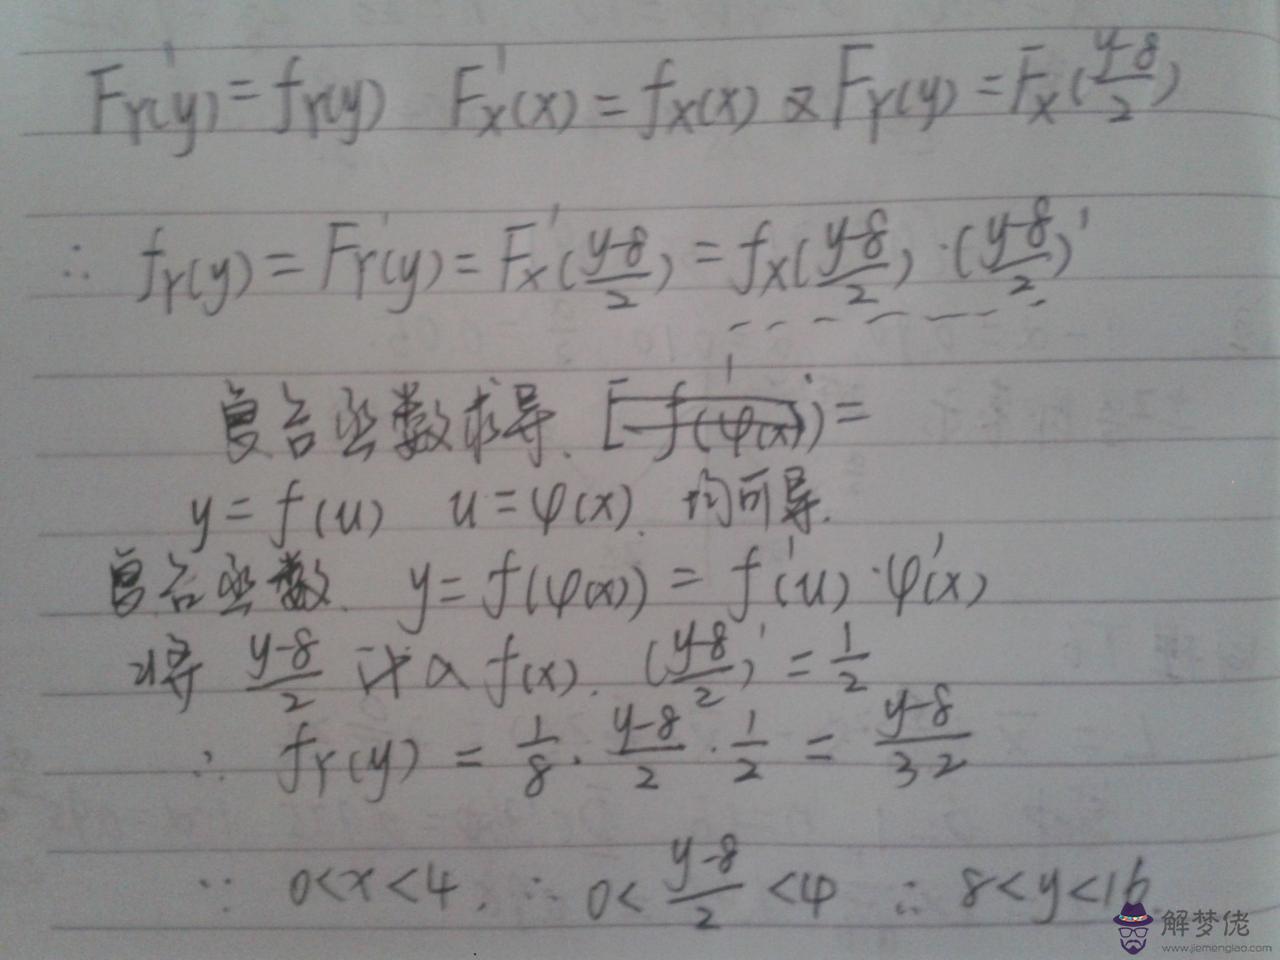 F_Y'(y) = f_Y(y)  F_X'(x) = f_X(x) 又 F_Y(y) = F_X((y-8)/2)
∴ f_Y(y) = F_Y'(y) = F_X'((y-8)/2) = f_X((y-8)/2) · ((y-8)/2)'
复合函数求导. [f(φ(x))]' =
y = f(u)  u = φ(x). 均可导.
复合函数. y = f(φ(x)) = f'(u) · φ'(x)
将 (y-8)/2 代入 f(x). ((y-8)/2)' = 1/2
∴ f_Y(y) = 1/8 · (y-8)/2 · 1/2 = (y-8)/32
∵ 0<x<4. ∴ 0< (y-8)/2 <4 ∴ 8<y<16
解梦佬
www.jiemenglao.com